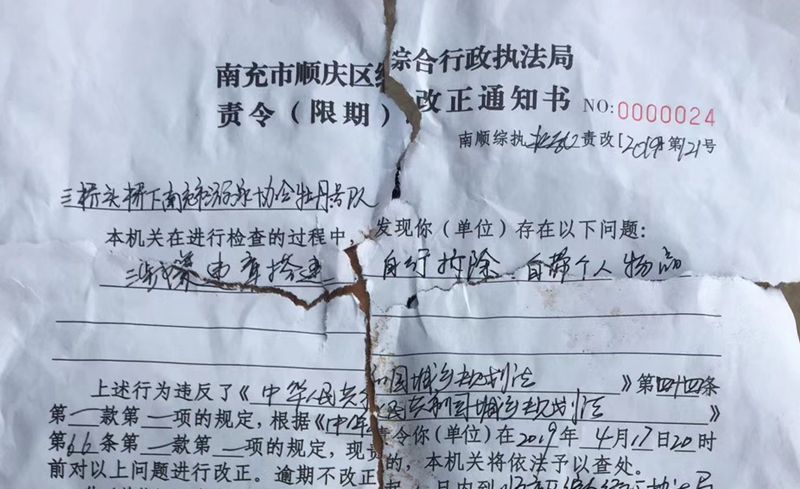 南充市顺庆区综合行政执法局
责令（限期）改正通知书 NO:0000024
南顺综执 责改[2019]第121号
三桥头桥下南充市游泳协会牡丹岛队
本机关在进行检查的过程中，发现你（单位）存在以下问题：
自行拆除、自带个人物品
上述行为违反了《中华人民共和国城乡规划法》第四十四条
第一款第一项的规定，根据《中华人民共和国城乡规划法》
第66条第一款第一项的规定，现责令你（单位）在2019年4月17日20时
前对以上问题进行改正。逾期不改正的，本机关将依法予以查处。